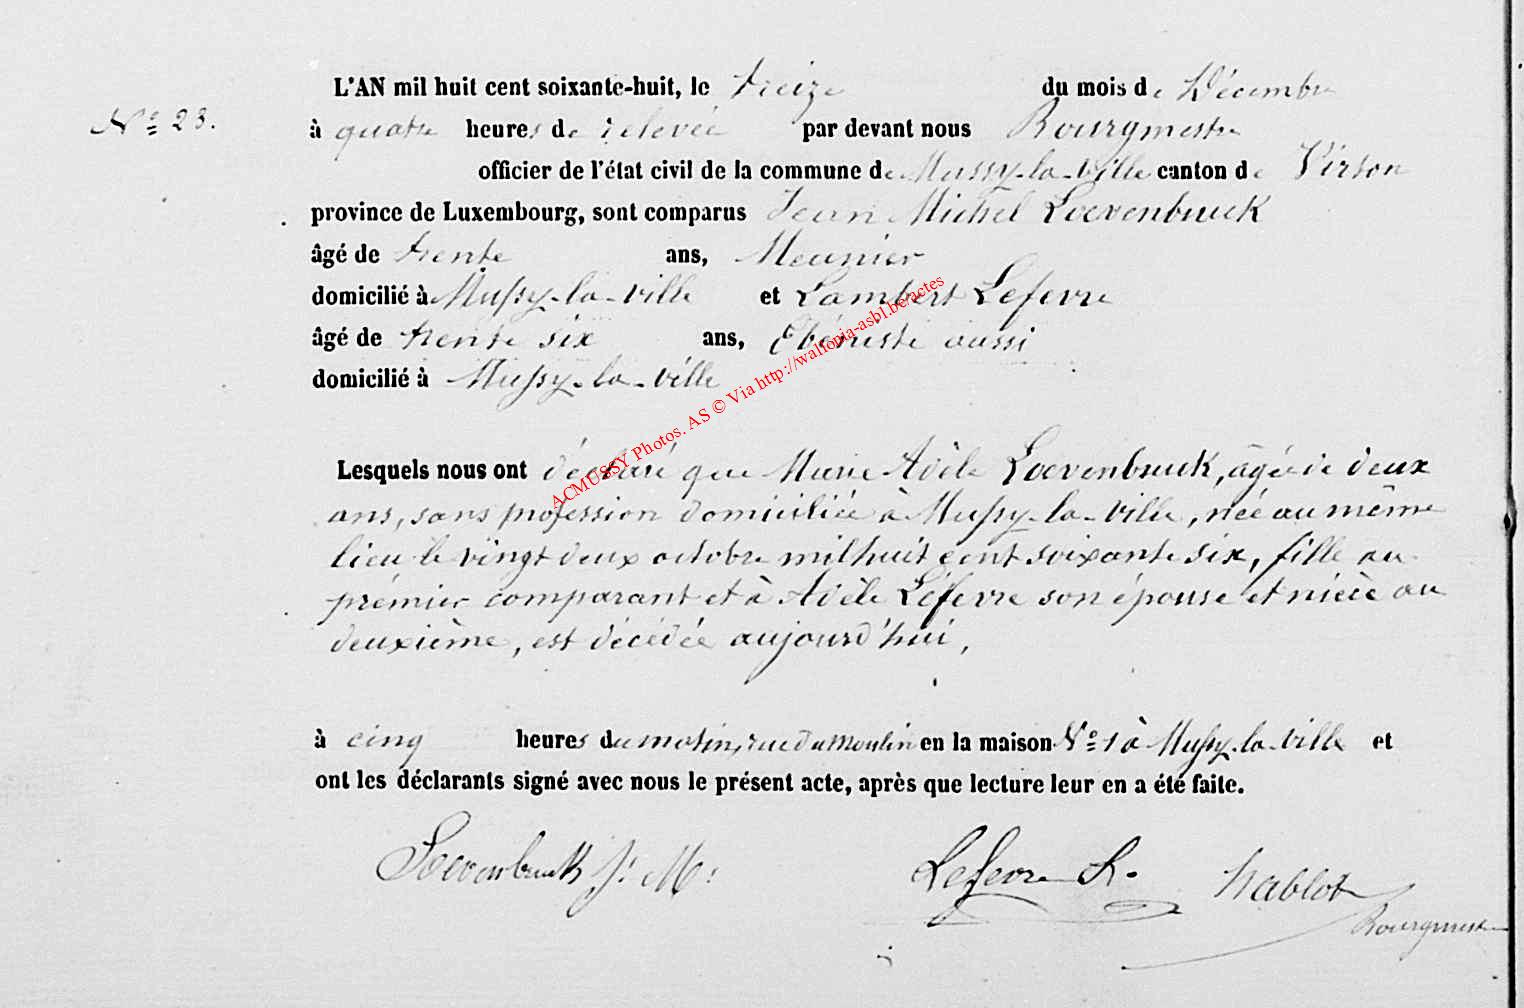 L'AN mil huit cent soixante-huit, le treize du mois de Décembre
N° 23.
à quatre heures de relevée par devant nous Bourgmestre
officier de l'état civil de la commune de Mussy-la-Ville canton de Virton
province de Luxembourg, sont comparus Jean Michel Loevenbruck
âgé de trente ans, Meunier
domicilié à Mussy-la-ville et Lambert Lefevre
âgé de trente six ans, Ebéniste aussi
domicilié à Mussy-la-ville
ACMUSSY Photos. AS © Via http://wallonia-asbl.be/actes
Lesquels nous ont déclaré que Marie Adèle Loevenbruck, âgée de deux
ans, sans profession domiciliée à Mussy-la-Ville, née au même
lieu le vingt deux octobre mil huit cent soixante six, fille au
prémier comparant et à Adèle Léfevre son épouse et nièce au
deuxième, est décédée aujourd'hui,
à cinq heures du matin, rue du Moulin en la maison N° 1 à Mussy-la-Ville et
ont les déclarants signé avec nous le présent acte, après que lecture leur en a été faite.
Loevenbruck J. M. Lefevre L. Hablot
Bourgmestre